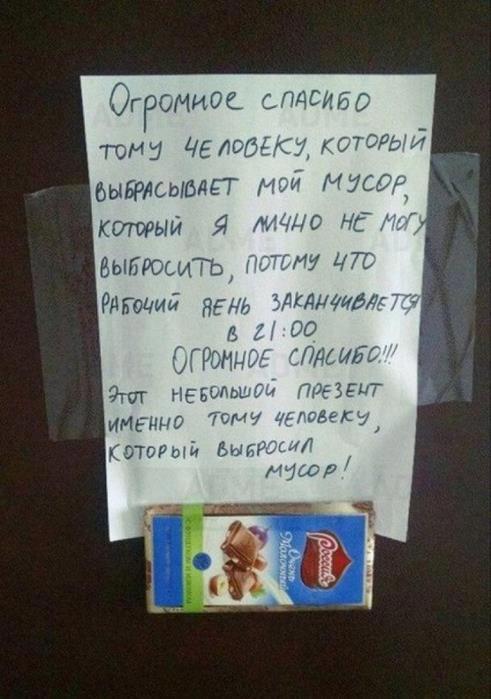 Огромное спасибо
тому человеку, который
выбрасывает мой мусор,
который я лично не могу
выбросить, потому что
рабочий день заканчивается
в 21:00
Огромное спасибо!!!
Этот небольшой презент
именно тому человеку,
который выбросил
мусор!
Россия
Очень
Молочный